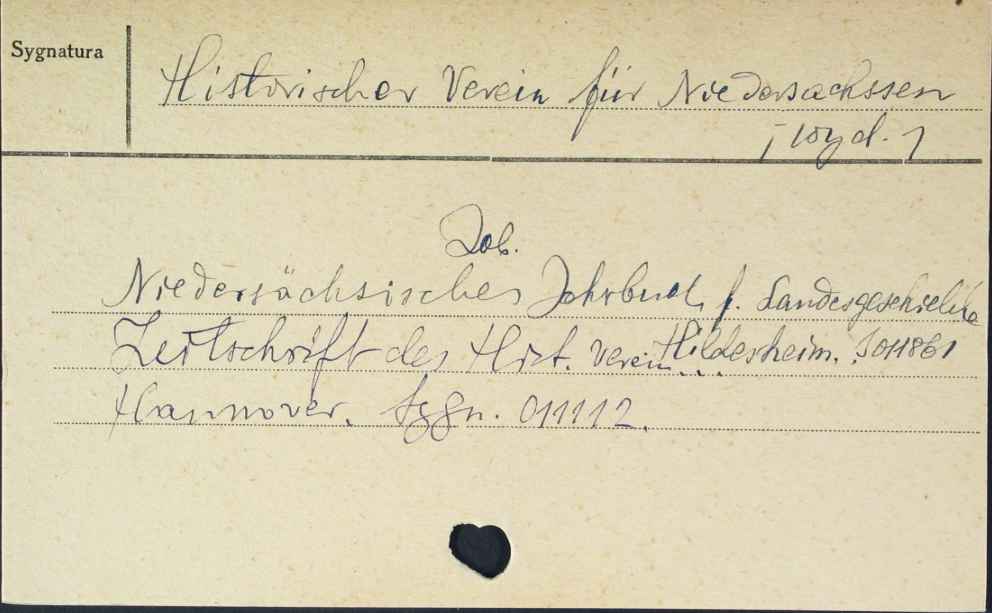 Sygnatura
Historischer Verein für Niedersachssen
[wyd.]
Zob.
Niedersächsisches Jahrbuch f. Landesgeschichte
Zeitschrift des Hist. Verein... Hildesheim. J 011861
Hannover. Sygn. 011112.